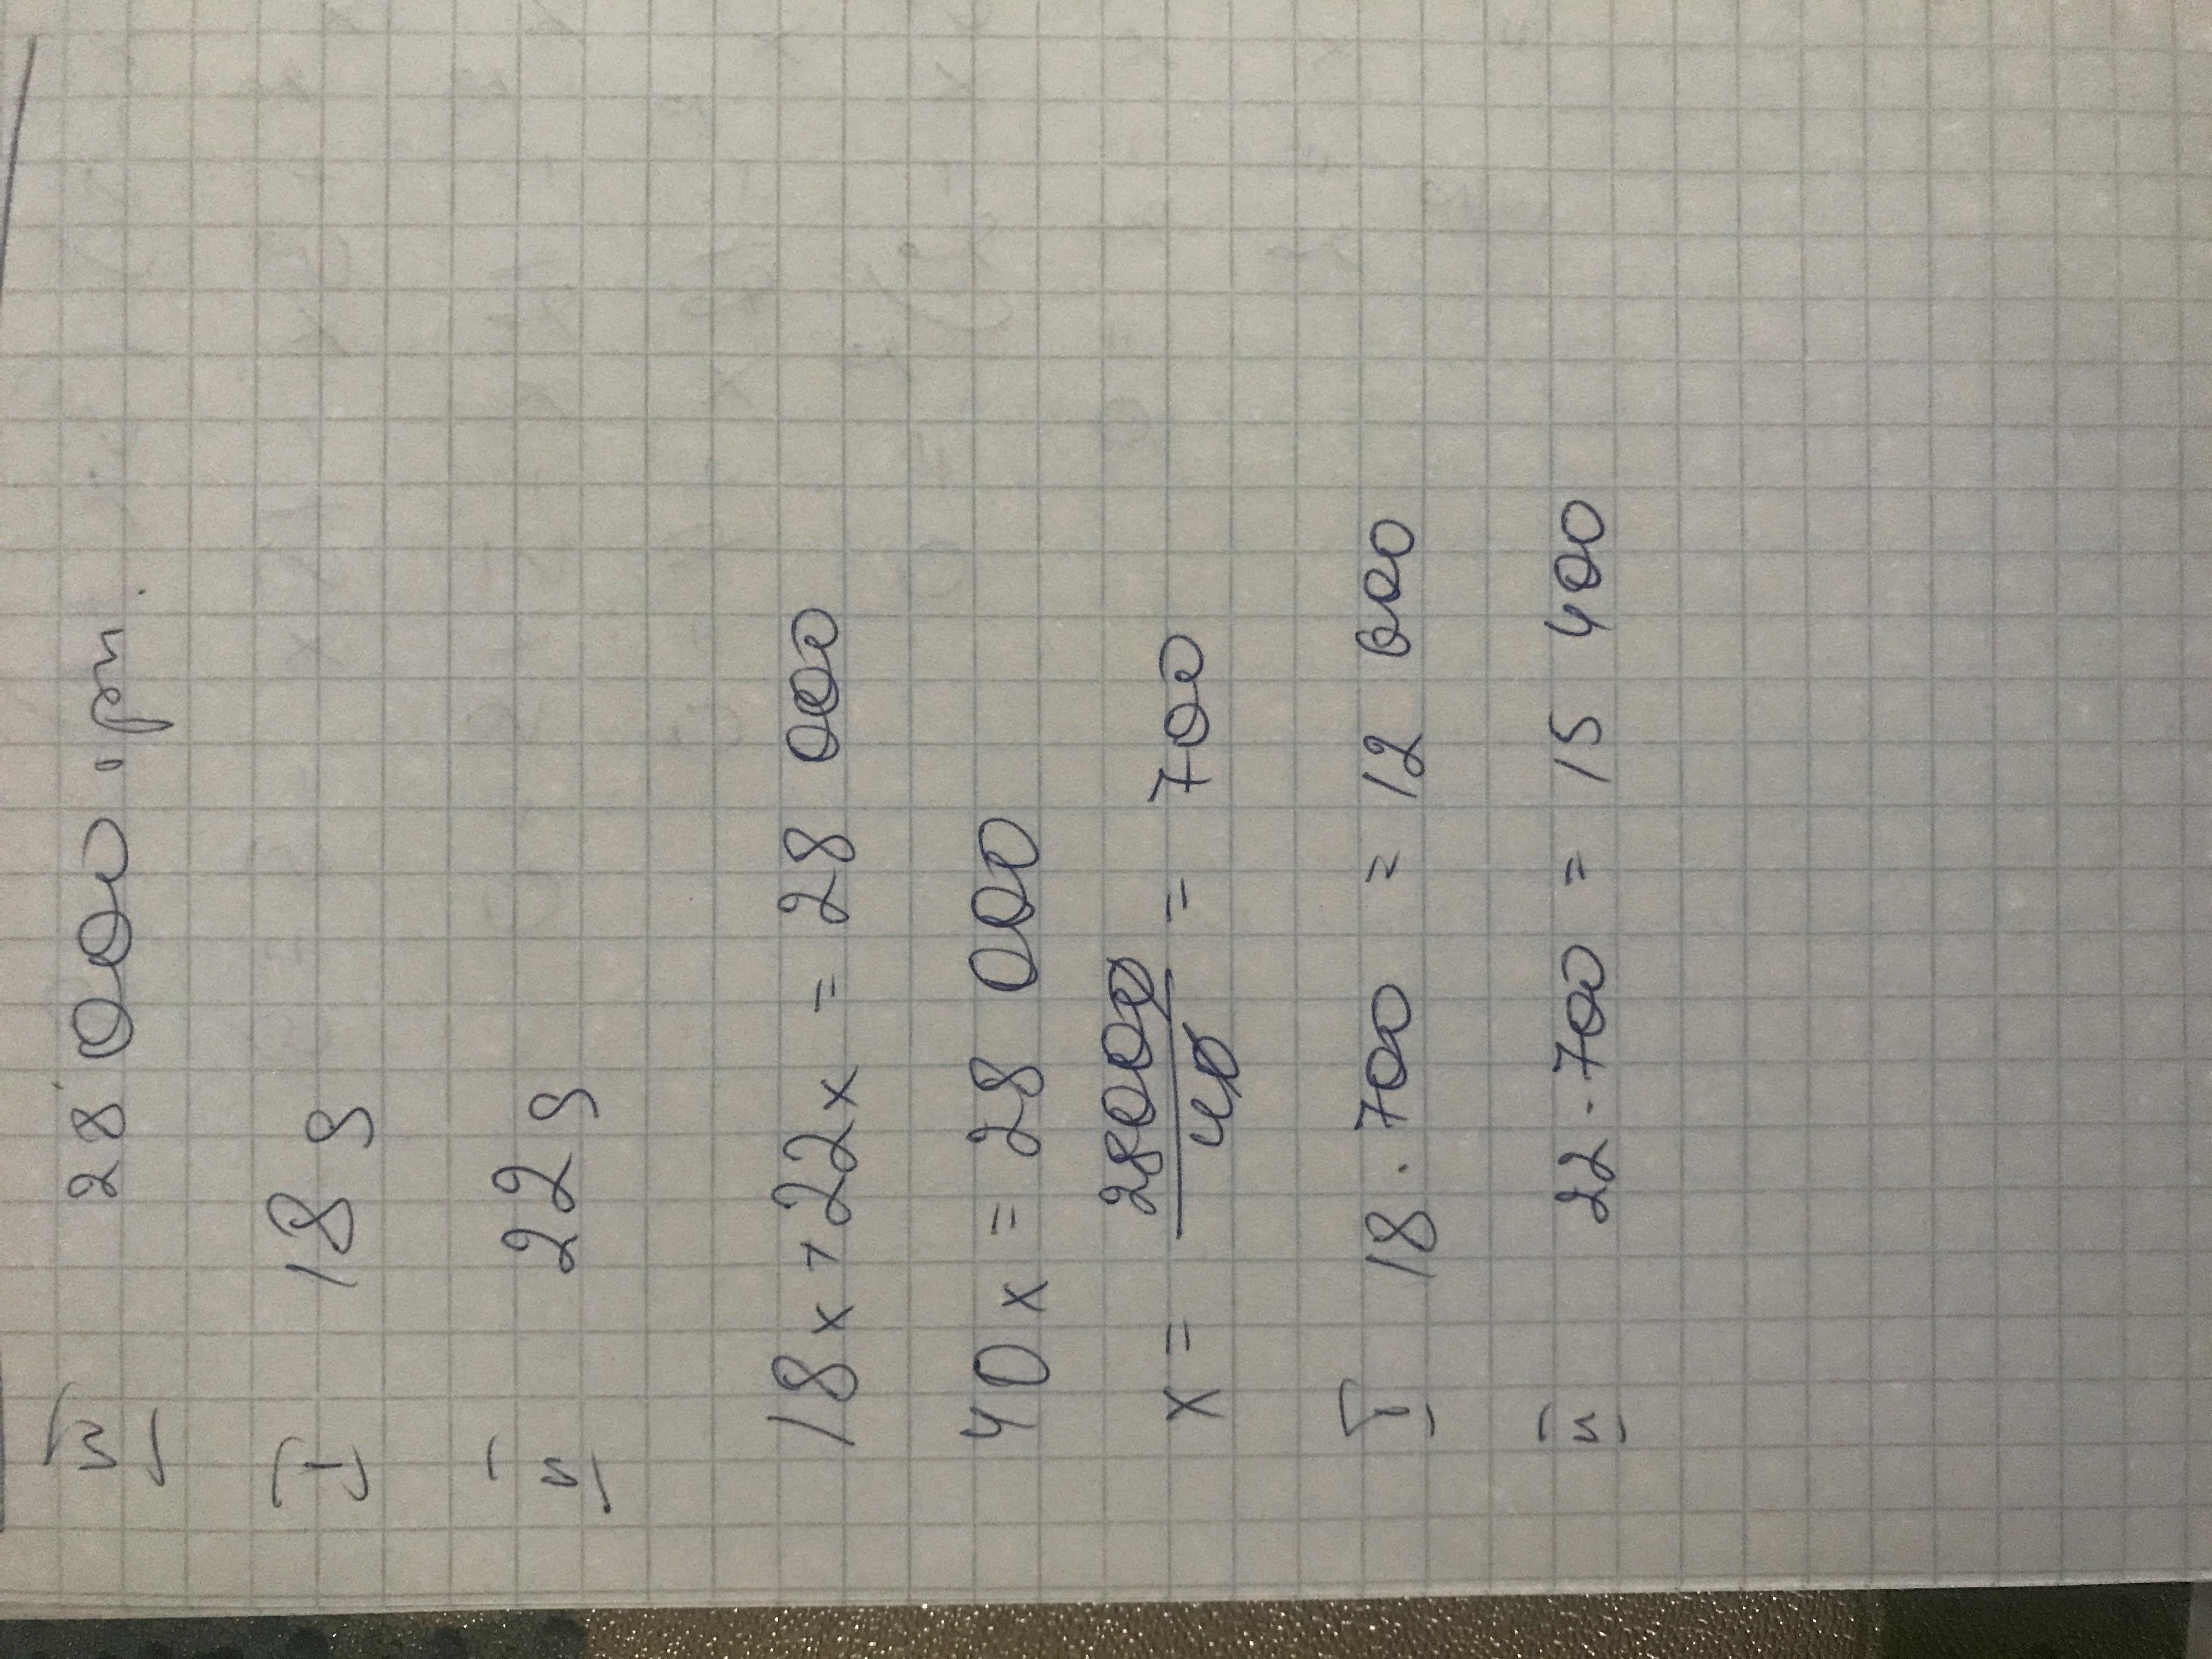 28 000 грн.
I 18 д
II 22 д
18x + 22x = 28 000
40x = 28 000
x = 28000/40 = 700
I 18 · 700 = 12 600
II 22 · 700 = 15 400